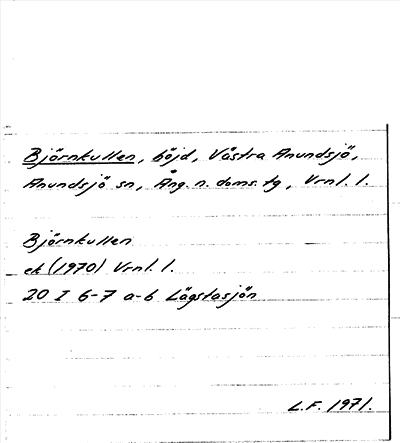 Björnkullen, höjd, Västra Anundsjö,
Anundsjö sn, Ång. n. doms. tg, Vrnl. l.
Björnkullen
ek (1970) Vrnl. l.
20 I 6-7 a-b Lägstasjön
L.F. 1971.